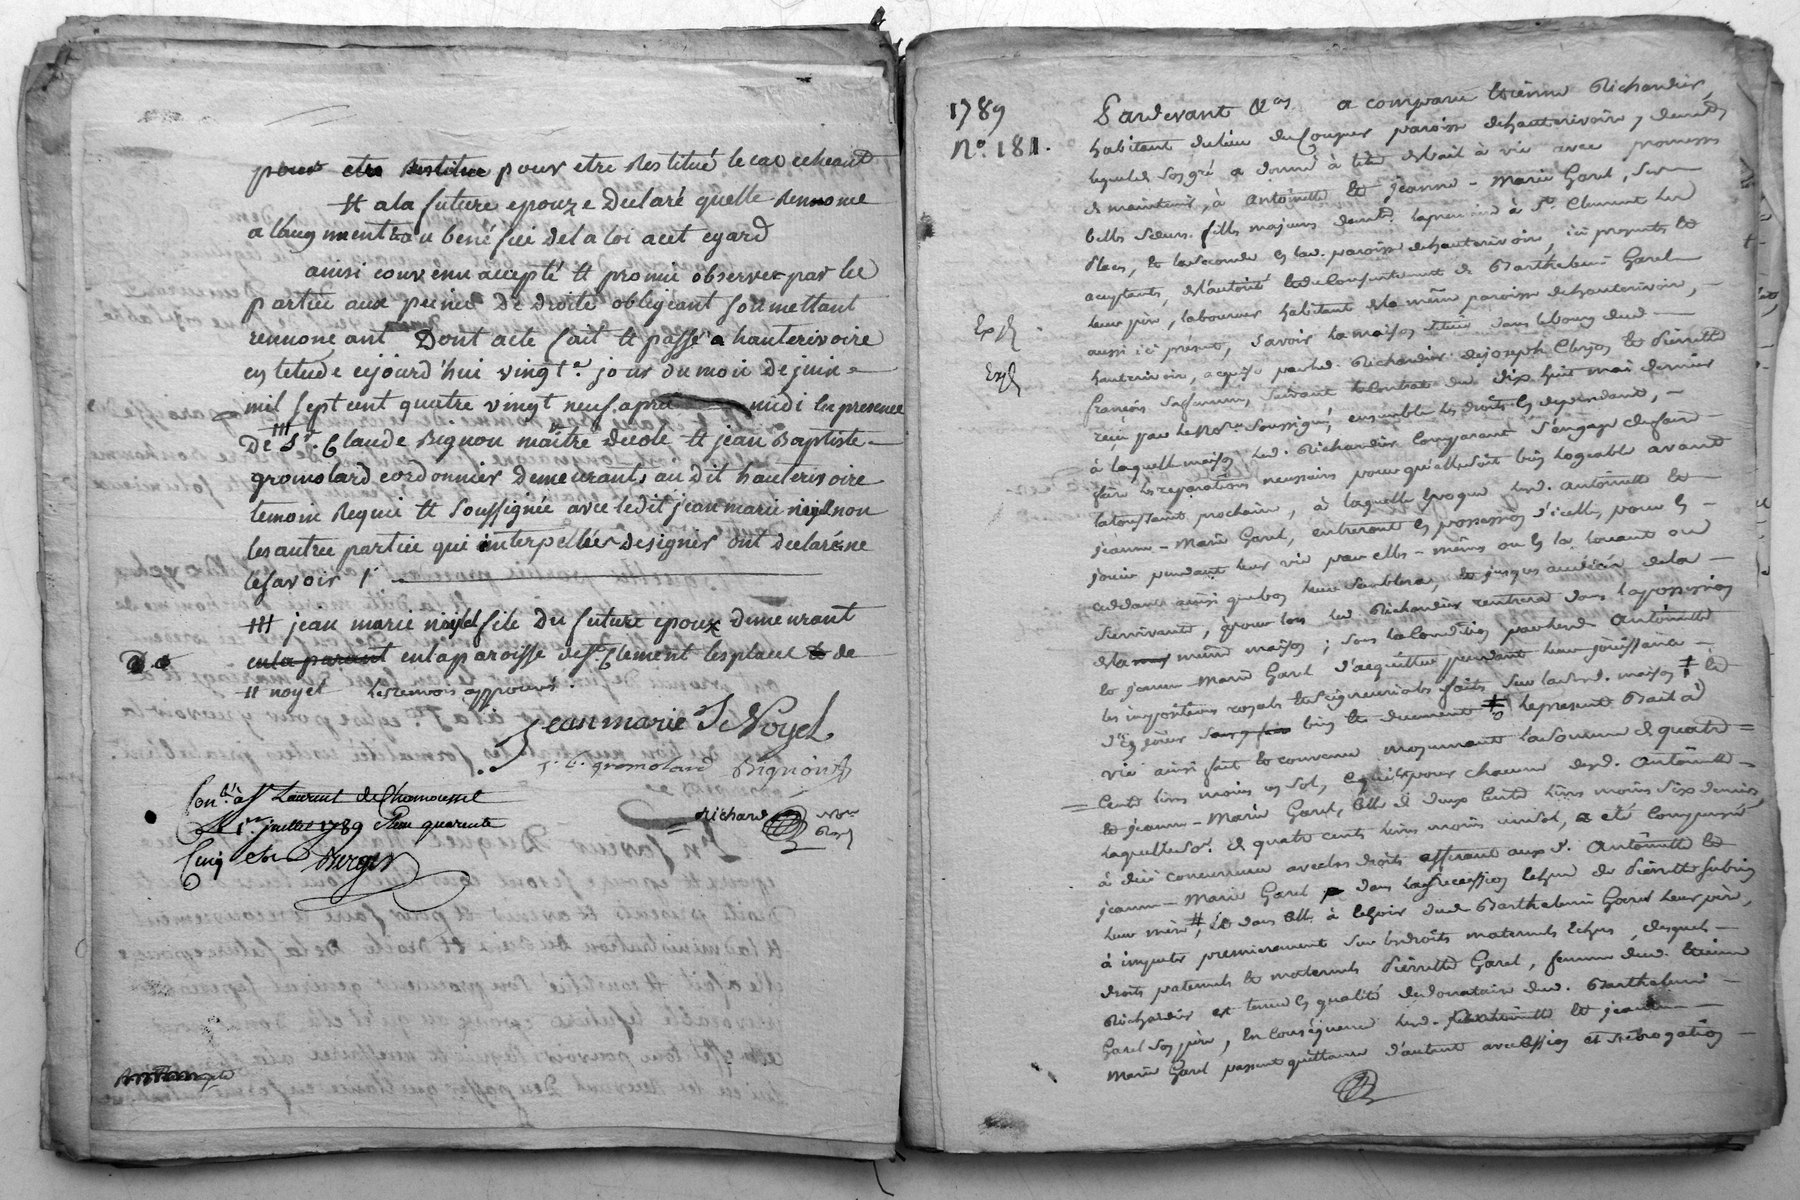 pour etre restitué pour etre restitué le cas echeant
et a la future epouze declaré quelle rennonce
a laugmentt au bené fice de la loi a cet egard
ainsi convenu accepté et promis observer par les
parties aux peines de droits obligeant soumettant
rennonceant Dont acte fait et passé a hauterivoire
en letude cejourd'hui vingte. jour du mois de juin
mil sept cent quatre vingt neuf apres midi En presence
De Sr. Claude Bignon maitre decole et jean Baptiste
gromolard cordonnier demeurants au dit hauterivoire
temoins Requis et soussignés avec ledit jean marie noyel non
les autres parties qui interpellées designer ont declaré ne
le savoir
jean marie noyel fils du future epoux demeurant
en la parant en la paroisse de st Clement les places de
De
et noyel les renvois approuvés.
jean marie De Noyel
J. B. gromolard Bignon
Richard Nore
Conle. à St Laurent de Chamousset
Le 1er juillet 1789 Reçu quarente
Cinq
Berger
1789
No. 181.
Pardevant &as a comparu Etienne Richardier,
habitant du lieu de Cougnes paroisse dehauterivoire, demeurant
lequel de son gré a donné à titre de bail à vie avec promesses
de maintenir, à Antoinette et jeanne-Marie Garel, sœurs
filles majeures demts. la premiere à St. Clement les
Places, et la seconde en lad. paroisse dehauterivoire, ici presents et
acceptants, de l'autorité et du Consentement de Barthelemi Garel
leur pere, laboureur habitant de la même paroisse dehauterivoire,
Exp
aussi ici présent, savoir la maison située dans le bourg dud.
hauterivoire, acquise par led. Richardier de joseph Clugos et Pierrette
Exp
françois suivant le Contrat du dix huit mai dernier
reçu par le Nore. Soussigné, ensemble les droits en dependant,
à laquelle maison, led. Richardier comparant s'engage de faire
faire les reparations necessaires pour qu'elle soit bien logeable avant
la toussaint prochaine, à laquelle époque lesd. Antoinette et
jeanne-Marie Garel, entreront en possession d'icelle, pour en
jouir pendant leur vie par elles-mêmes ou en la louant ou
cedant ainsi que bon leur semblera, et jusques au décès de la
survivante, & pour lors led Richardier rentrera dans la possession
de la même maison; sous la Condition par lesd Antoinette
et jeanne-Marie Garel d'acquitter pendant leur jouissance
les impositions royales et seigneuriales faites sur lad. maison et
d'en jouir bien et duement le present Bail à
vie ainsi fait et convenu moyennant la somme de quatre
Cents livres moins un sol, qui est pour chacune desd. Antoinette
et jeanne-Marie Garel, celle de deux Cents livres moins six deniers
laquelle so. de quatre cents livres moins un sol, a eté Compensée
à due concurrence avec les droits afferant aux d. Antoinette et
jeanne-Marie Garel dans la succession echue de Pierrette Subrin
leur mere, Et dans celle à échoir dud Barthelemi Garel leur père,
à imputer premierement sur les droits maternels echus, desquels
droits paternels et maternels Pierrette Garel, femme dud. Etienne
Richardier est tenue en qualité de donataire dud. Barthelemi
Garel son père, En Conséquence lesd. Antoinette et jeanne
Marie Garel passent quittance d'autant avec cession et subrogation